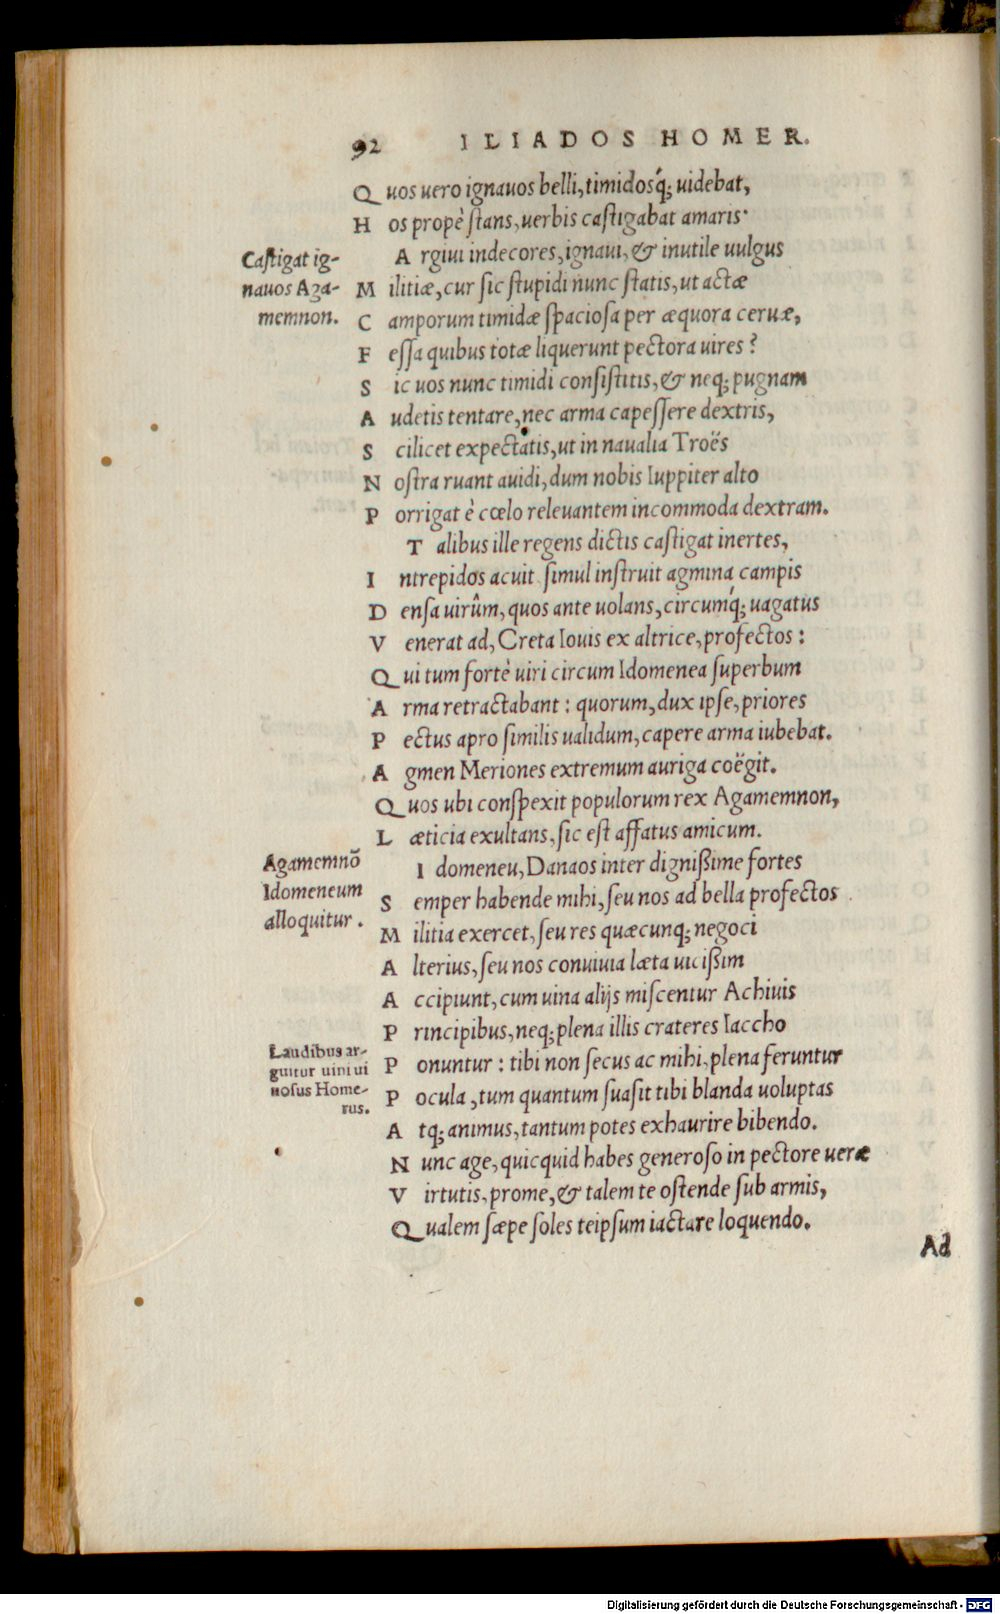 92 ILIADOS HOMER.
Quos uero ignauos belli, timidosq́; uidebat,
Hos propè stans, uerbis castigabat amaris.
Castigat ig-
nauos Aga-
memnon.
Argiui indecores, ignaui, & inutile uulgus
Militiæ, cur sic stupidi nunc statis, ut actæ
Camporum timidæ spaciosa per æquora ceruæ,
Fessa quibus totæ liquerunt pectora uires?
Sic uos nunc timidi consistitis, & neq; pugnam
Audetis tentare, nec arma capessere dextris,
Scilicet expectatis, ut in naualia Troës
Nostra ruant auidi, dum nobis Iuppiter alto
Porrigat è cœlo releuantem incommoda dextram.
Talibus ille regens dictis castigat inertes,
Intrepidos acuit simul instruit agmina campis
Densa uirûm, quos ante uolans, circumq́; uagatus
Venerat ad, Creta Iouis ex altrice, profectos:
Qui tum fortè uiri circum Idomenea superbum
Arma retractabant: quorum, dux ipse, priores
Pectus apro similis ualidum, capere arma iubebat.
Agmen Meriones extremum auriga coëgit.
Quos ubi conspexit populorum rex Agamemnon,
Læticia exultans, sic est affatus amicum.
Agamemnō
Idomeneum
alloquitur.
Idomeneu, Danaos inter dignißime fortes
Semper habende mihi, seu nos ad bella profectos
Militia exercet, seu res quæcunq; negoci
Alterius, seu nos conuiuia læta uicißim
Accipiunt, cum uina alijs miscentur Achiuis
Principibus, neq; plena illis crateres Iaccho
Laudibus ar-
guitur uini ui
nosus Home-
rus.
Ponuntur: tibi non secus ac mihi, plena feruntur
Pocula, tum quantum suasit tibi blanda uoluptas
Atq; animus, tantum potes exhaurire bibendo.
Nunc age, quicquid habes generoso in pectore ueræ
Virtutis, prome, & talem te ostende sub armis,
Qualem sæpe soles teipsum iactare loquendo.
Ad
Digitalisierung gefördert durch die Deutsche Forschungsgemeinschaft - DFG